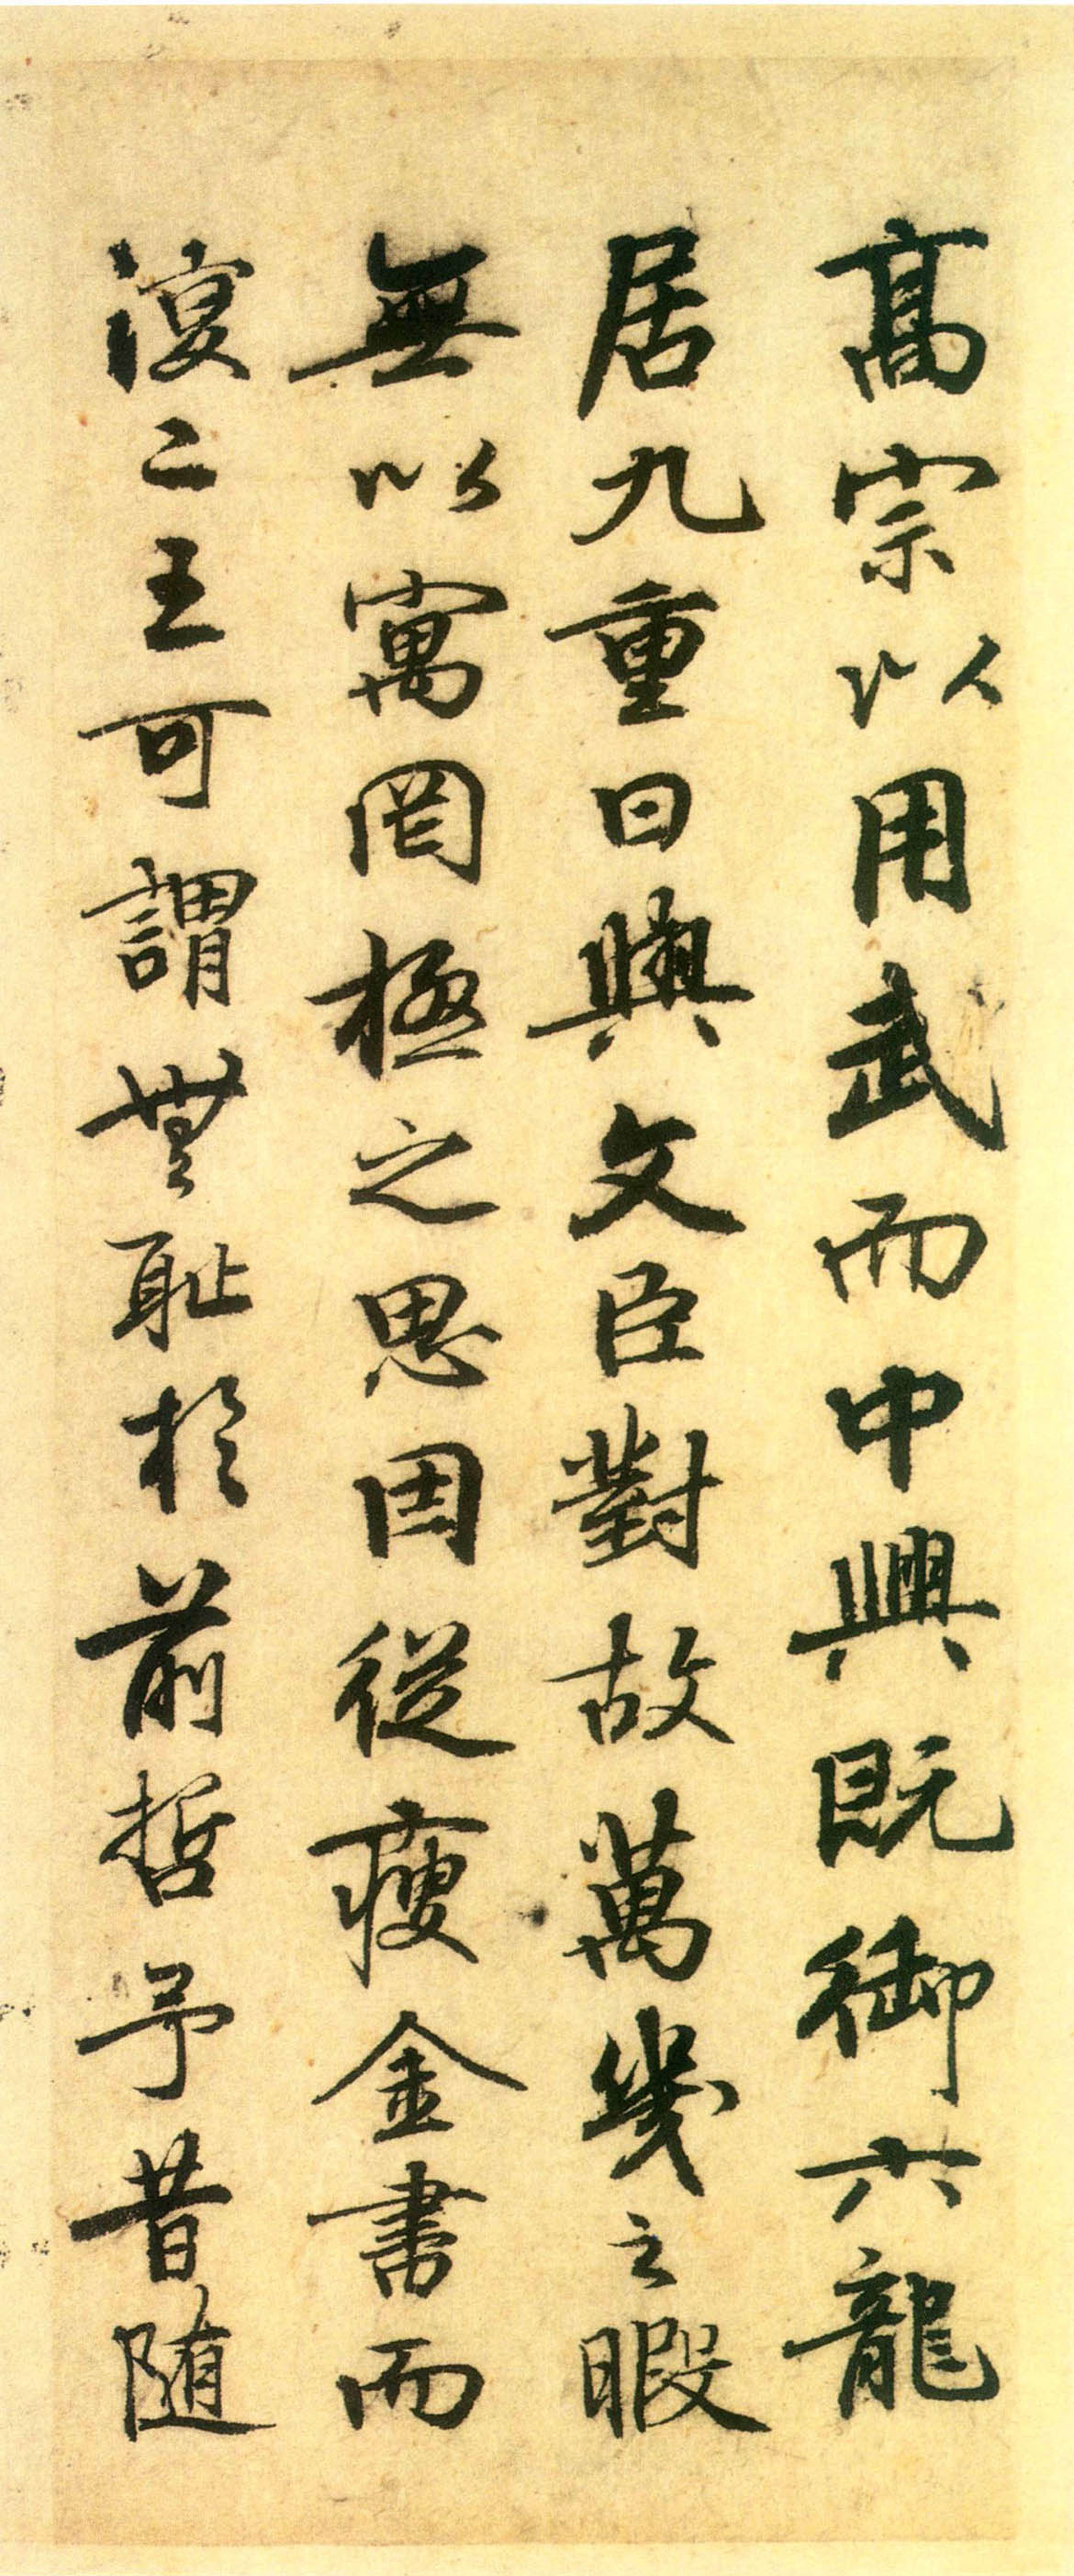 髙宗以用武而中興既御六龍
居九重日與文臣對故萬幾之暇
無以寓罔極之思因從瘦金書而
復二王可謂無恥於前哲予昔随